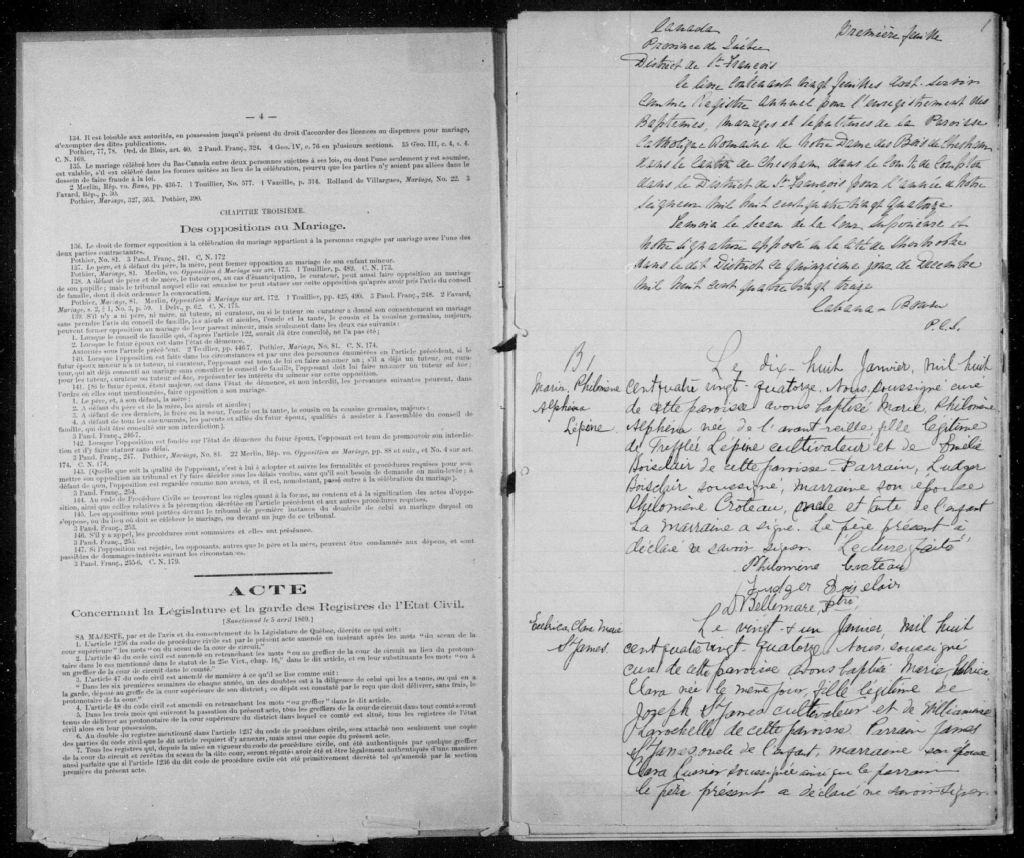 — 4 —
134. Il est loisible aux autorités, en possession jusqu'à présent du droit d'accorder des licences ou dispenses pour mariage,
d'exempter des dites publications.
Pothier, 77, 78. Ord. de Blois, art. 40. 2 Pand. Franç., 324. 4 Geo. IV, c. 76 en plusieurs sections. 35 Geo. III, c. 4, s. 4.
C. N. 169.
135. Le mariage célébré hors du Bas-Canada entre deux personnes sujettes à ses lois, ou dont l'une seulement y est soumise,
est valable, s'il est célébré dans les formes usitées au lieu de la célébration, pourvu que les parties n'y soient pas allées dans le
dessein de faire fraude à la loi.
2 Merlin, Rép. vo. Bans, pp. 436-7. 1 Touillier, No. 577. 4 Vazeille, p. 314. Rolland de Villargues, Mariage, No. 22. 3
Favard, Rép., p. 59.
Pothier, Mariage, 327, 363. Pothier, 390.
CHAPITRE TROISIÈME.
Des oppositions au Mariage.
136. Le droit de former opposition à la célébration du mariage appartient à la personne engagée par mariage avec l'une des
deux parties contractantes.
Pothier, No. 81. 3 Pand. Franç., 241. C. N. 172
137. Le père, et à défaut du père, la mère, peut former opposition au mariage de son enfant mineur.
Pothier, Mariage, 81. Merlin, vo. Opposition à Mariage sur art. 173. 1 Touillier, p. 489. C. N. 173.
138. A défaut de père et de mère, le tuteur ou, au cas d'émancipation, le curateur, peut aussi faire opposition au mariage
de son pupille; mais le tribunal auquel elle est soumise ne peut statuer sur cette opposition qu'après avoir pris l'avis du conseil
de famille, dont il doit ordonner la convocation.
Pothier, Mariage, 81. Merlin, Opposition à Mariage sur art. 172. 1 Touillier, pp. 425, 490. 3 Pand. Franç., 248. 2 Favard,
Mariage, s. 2, § 1, No. 3, p. 59. 1 Delv., p. 62. C. N. 175.
139. S'il n'y a ni père, ni mère, ni tuteur, ni curateur, ou si le tuteur ou curateur a donné son consentement au mariage
sans prendre l'avis du conseil de famille, les aïeuls et aïeules, l'oncle et la tante, le cousin et la cousine germains, majeurs,
peuvent former opposition au mariage de leur parent mineur, mais seulement dans les deux cas suivants:
1. Lorsque le conseil de famille qui, d'après l'article 122, aurait dû être consulté, ne l'a pas été;
2. Lorsque le futur époux est dans l'état de démence.
Autorités sous l'article précédent. 2 Touillier, pp. 446-7. Pothier, Mariage, No. 81. C. N. 174.
140. Lorsque l'opposition est faite dans les circonstances et par une des personnes énumérées en l'article précédent, si le
futur époux mineur n'a ni tuteur, ni curateur, l'opposant est tenu de lui en faire nommer un; s'il a déjà un tuteur, ou curateur,
qui ait déjà consenti au mariage sans consulter le conseil de famille, l'opposant doit lui faire nommer un tuteur ad hoc;
pour les tuteur, curateur ou tuteur ad hoc, représenter les intérêts du mineur sur cette opposition.
141. [Si le futur époux, étant majeur, est dans l'état de démence, et non interdit, les personnes suivantes peuvent, dans
l'ordre où elles sont mentionnées, faire opposition à son mariage.
1. Le père, et, à son défaut, la mère;
2. A défaut du père et de la mère, les aïeuls et aïeules;
3. A défaut de ces derniers, le frère ou la sœur, l'oncle ou la tante, le cousin ou la cousine germains, majeurs;
4. A défaut de tous les sus-nommés, les parents et alliés du futur époux, qualifiés à assister à l'assemblée du conseil de
famille, qui doit être consulté sur son interdiction.]
3 Pand. Franç., 246-7.
142. Lorsque l'opposition est fondée sur l'état de démence du futur époux, l'opposant est tenu de promouvoir son interdiction
et d'y faire statuer sans délai.
3 Pand. Franç., 247. Pothier, Mariage, No. 81. 22 Merlin, Rép. vo. Opposition au Mariage, pp. 88 et suiv., et No. 4 sur art.
174. C. N. 174.
143. (Quelle que soit la qualité de l'opposant, c'est à lui à adopter et suivre les formalités et procédures requises pour soumettre
son opposition au tribunal et l'y faire décider sous les délais voulus, sans qu'il soit besoin de demande en main-levée; à
défaut de quoi, l'opposition est regardée comme non avenu, et il est, nonobstant, passé outre à la célébration du mariage).
3 Pand. Franç., 254.
144. Au code de Procédure Civile se trouvent les règles quant à la forme, au contenu et à la signification des actes d'opposition,
ainsi que celles relatives à la péremption décrétée en l'article précédent et aux autres procédures requises.
145. Les oppositions sont portées devant le tribunal de première instance du domicile de celui au mariage duquel on
s'oppose, ou du lieu où doit se célébrer le mariage, ou devant un juge de ce tribunal.
3 Pand. Franç., 253.
146. S'il y a appel, les procédures sont sommaires et elles ont préséance.
3 Pand. Franç., 253.
147. Si l'opposition est rejetée, les opposants, autres que le père et la mère, peuvent être condamnés aux dépens, et sont
passibles de dommages-intérêts suivant les circonstances.
3 Pand. Franç., 255-6. C. N. 179.
ACTE
Concernant la Législature et la garde des Registres de l'Etat Civil.
[Sanctionné le 5 avril 1869.]
SA MAJESTÉ, par et de l'avis et du consentement de la Législature de Québec, décrète ce qui suit:
1. L'article 1236 du code de procédure civile est par le présent acte amendé en insérant après les mots "du sceau de la
cour supérieure" les mots "ou du sceau de la cour de circuit."
2. L'article 45 du code civil est amendé en retranchant les mots "ou au greffier de la cour de circuit au lieu du protonotaire
dans le cas mentionné dans le statut de la 25e Vict., chap. 16," dans le dit article, et en leur substituants les mots "ou à
un greffier de la cour de circuit dans le comté."
3. L'article 47 du code civil est amendé de manière à ce qu'il se lise comme suit:
"Dans les six premières semaines de chaque année, un des doubles est à la diligence de celui qui les a tenus, ou qui en a
la garde, déposé au greffe de la cour supérieure de son district; ce dépôt est constaté par le reçu que doit délivrer, sans frais, le
protonotaire de la cour."
4. L'article 48 du code civil est amendé en retranchant les mots "ou greffier" dans le dit article.
5. Dans les trois mois qui suivront la passation du présent acte, tous les greffiers de la cour de circuit dans tout comté seront
tenus de délivrer au protonotaire de la cour supérieure du district dans lequel ce comté est situé, tous les registres de l'état
civil alors en leur possession.
6. Au double du registre mentionné dans l'article 1237 du code de procédure civile, sera attaché non seulement une copie
des parties du code civil que le dit article requiert d'y annexer, mais aussi une copie du présent acte.
7. Tous les registres qui, depuis la mise en vigueur du code de procédure civile, ont été authentiqués par quelque greffier
de la cour de circuit et revêtus du sceau de la dite cour, seront réputés avoir été et être légalement authentiqués d'une manière
aussi parfaite que si l'article 1236 du dit code de procédure civile eût été primitivement décrété tel qu'amendé par la section
première du présent acte.
1
Canada Première feuille
Province de Québec
District de St François
Le livre contenant vingt feuilles doit servir
comme Registre annuel pour l'enregistrement des
Baptemes, Mariages et sépultures de la Paroisse
Catholique Romaine de Notre Dame des Bois de Chesham
dans le Canton de Chesham dans le Comté de Compton
dans le District de St François pour l'année de Notre
Seigneur mil huit cent quatre vingt quatorze
Temoin le sceau de la Cour Supérieure et
notre signature apposé en la Cité de Sherbrooke
dans le dit District ce quinzieme jour de Decembre
mil huit cent quatre vingt treize
Cabana & Bowen
P.C.S.
B 1
Marie, Philomène
Alphéna
Lépine.
Le dix-huit Janvier, mil huit
cent quatre vingt-quatorze, Nous, soussigné curé
de cette paroisse avons baptisé Marie, Philomène
Alphena née de l'avant veille, fille légitime
de Trefflé Lépine cultivateur et de Emélie
Boisclair de cette paroisse Parrain, Ludger
Boisclair soussigné, marraine son épouse
Philomène Croteau, oncle et tante de l'enfant
La marraine a signé. Le père présent a
déclaré ne savoir signer. Lecture faite
Philomène Croteau
Ludger Boisclair
Bellemare, ptre,
Clara Marie
St James.
Le vingt & un Janvier, mil huit
cent quatre vingt-quatorze Nous, soussigné
curé de cette paroisse avons baptisé Marie,
Clara née le même jour, fille légitime de
Joseph St James cultivateur et de
Larochelle de cette paroisse. Parrain James
St James oncle de l'enfant, marraine son épouse
Clara soussignée ainsi que le parrain
le père présent a déclaré ne savoir signer